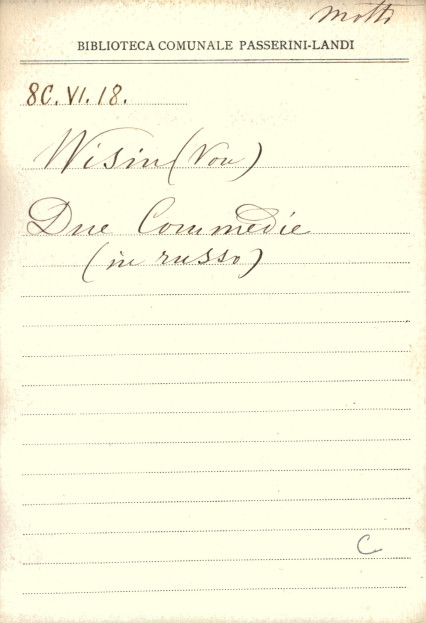 Motti
BIBLIOTECA COMUNALE PASSERINI-LANDI
8C. VI. 18.
Wisin (Von)
Due Commedie
(in russo)
C